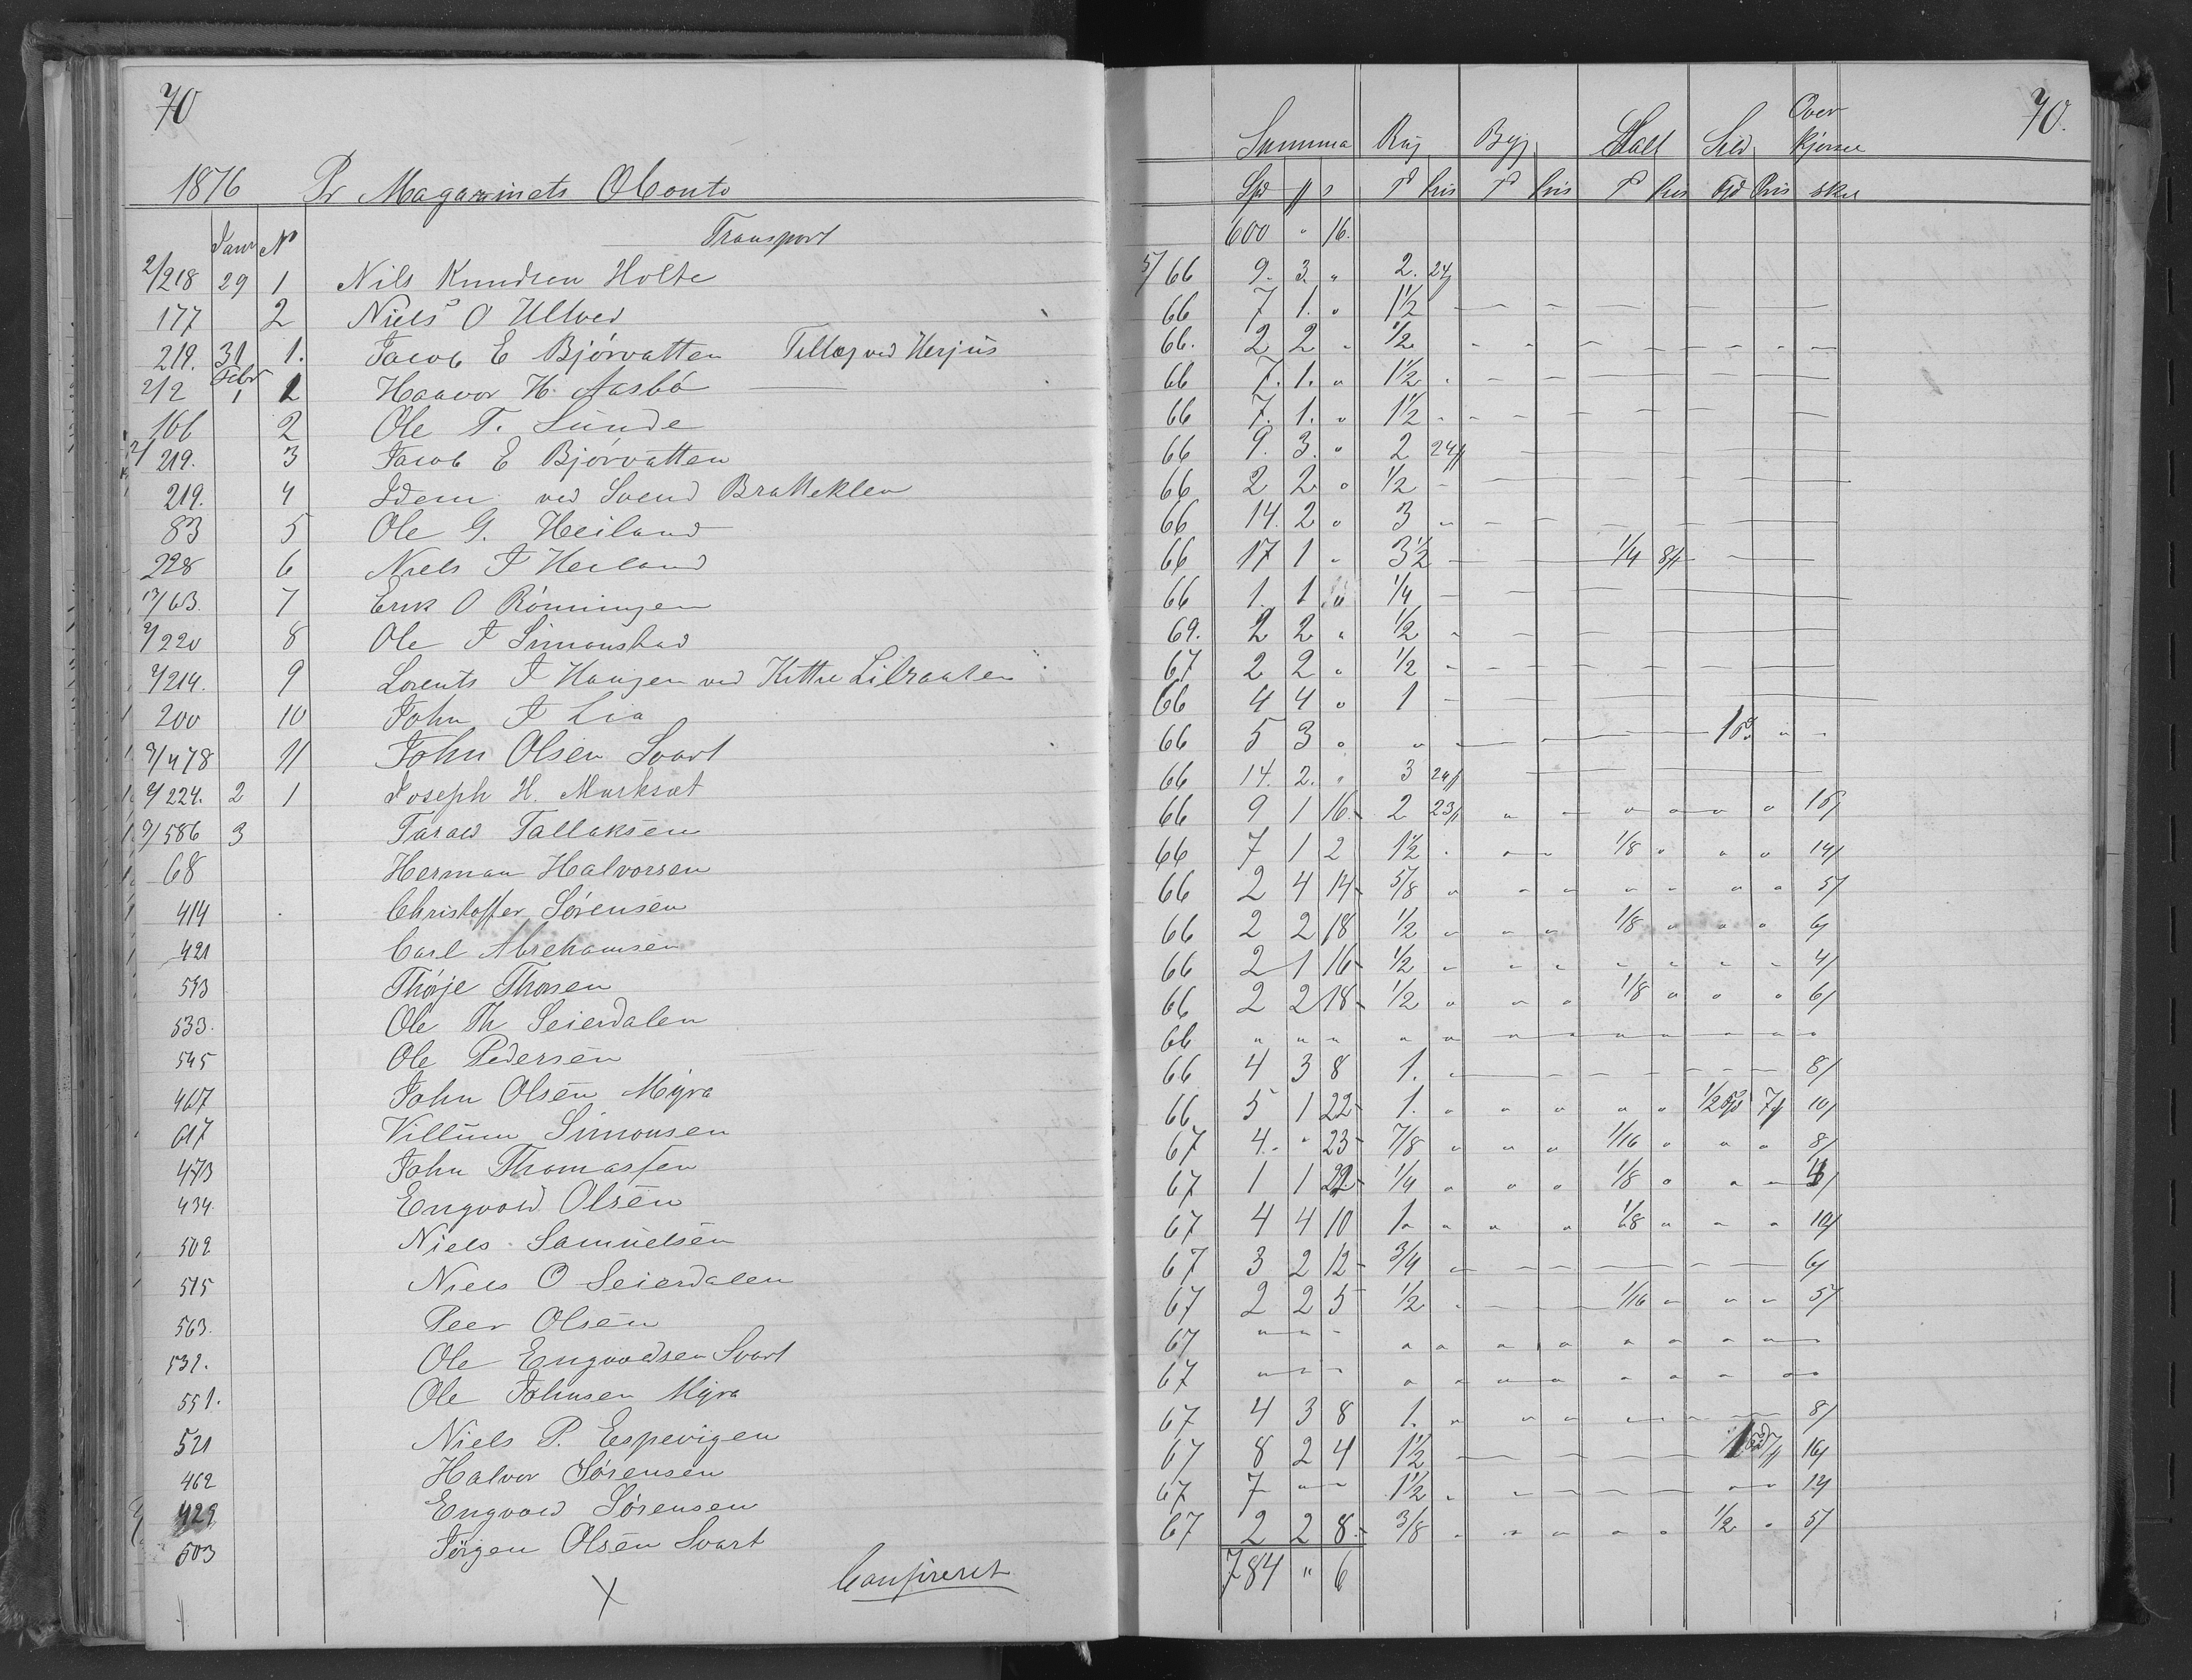 70
1876 Pr Magazinets Conto
Janr No Transport
2/218 29 1 Nils Knudsen Holte
177 2 Niels O Ulltved
219. 31 1. Jacob E Bjórvatten Tillæg ved Herjus
212 Febr 1 1 Haavor H. Aasbó
166 2 Ole T. Sunde
2/219. 3 Jacob E Bjórvatten
219. 4 Idem ved Svend Bratteklev
83 5 Ole G. Heiland
228 6 Niels J Heiland
63. 7 Erik O Rónningen
2/220 8 Ole J Simonstad
2/214. 9 Lorents J Haugen ved Kittil Lilraaten
200 10 John J Lia
2/478 11 John Olsen Svart
2/224. 2 1 Joseph H. Marksæt
2/586 3 Tarald Tallaksen
68 Herman Halvorsen
414 Christoffer Sórensen
421 Carl Abrehamsen
593 Thórje Thorsen
533. Ole Th Seierdalen
545 Ole Pedersen
467 John Olsen Myra
617 Villum Simonsen
473 John Thomassen
434. Engvold Olsen
502 Niels Samuelsen
515 Niels O Seierdalen
563. Peer Olsen
532. Ole Engvoldsen Svart
551. Ole Johnsen Myra
521 Niels P. Espevigen
462 Halvor Sórensen
429 Engvold Sórensen
503 Jórgen Olsen Svart
X Confireret
70.
Summa Rug Byg Salt Sild Over kjørsel
Spd ₰ s T Pris T Pris T Pris Pris skil
600 " 16.
5/66 9. 3. " 2. 24
66 7 1. " 1 1/2
66. 2 2 " 1/2
66 7. 1. " 1 1/2
66 7. 1. " 1 1/2
66 9. 3. " 2 24
66 2 2 " 1/2
66 14. 2 " 3
66 17 1 " 3 1/2 1/4 8
66 1. 1 " 1/4
69. 2 2 " 1/2
67 2 2 " 1/2
66 4 4 " 1
66 5 3 " "
66 14. 2. " 3 24
66 9 1 16 2 23 " " " " " " 16/
66 7 1 2 1 1/2 " " " 1/8 " " " 14/
66 2 4 14 5/8 " " " " " " " 5/
66 2 2 18 1/2 " " " 1/8 " " " 6/
66 2 1 16 1/2 " " " " " " " 4/
66 2 2 18 1/2 " " " 1/8 " " " 6/
66 " " " " " " " " " " " "
66 4 3 8 1. " 8/
66 5 1 22 1. " " " " " 1/2 7 10/
67 4. " 23 7/8 " " " 1/16 " " " 8/
67 1 1 22 1/4 " " " 1/8 " " "
67 4 4 10 1 " " " 1/8 " " " 10/
67 3 2 12 3/4 " 6/
67 2 2 5 1/2 " 1/16 " " " 5/
67 " " " " " " " " " " " "
67 " " " " " " " " " " " "
67 4 3 8 1. " " " " " " " 8/
67 8 2 4 1 1/2 " 16/
67 7 " " 1 1/2 " " " 14
67 2 2 8 3/8 " " " " " 1/2 " 5/
784 " 6